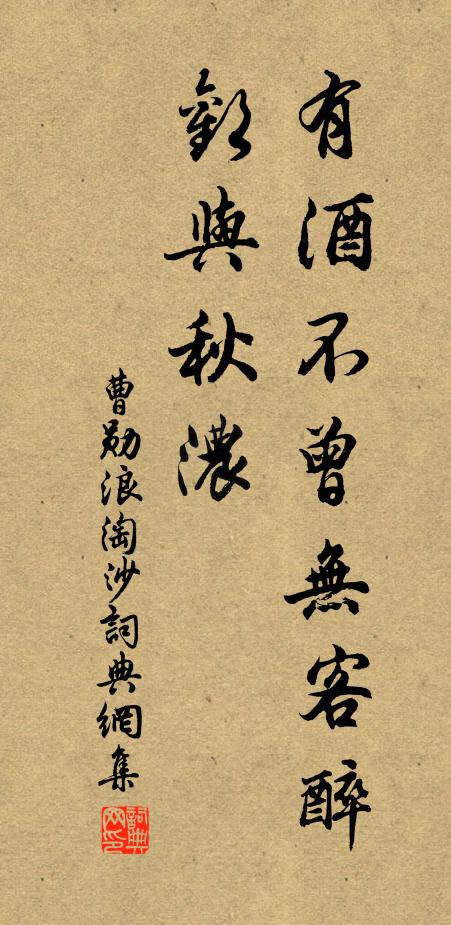 有酒不曾無客醉
歡與秋濃
曹勛浪淘沙詞典網集
詞典網印